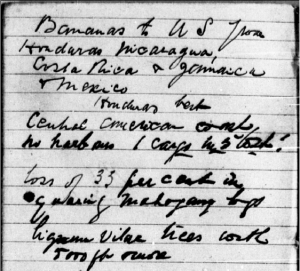 Bananas to U S from
Honduras Nicaragua,
Costa Rica & Jamaica
& Mexico
Honduras best
Central American coast
no harbors 1 cargo in 3 lost!
loss of 33 per cent in
squaring mahogany logs
lignum Vitae trees worth
5000 ft